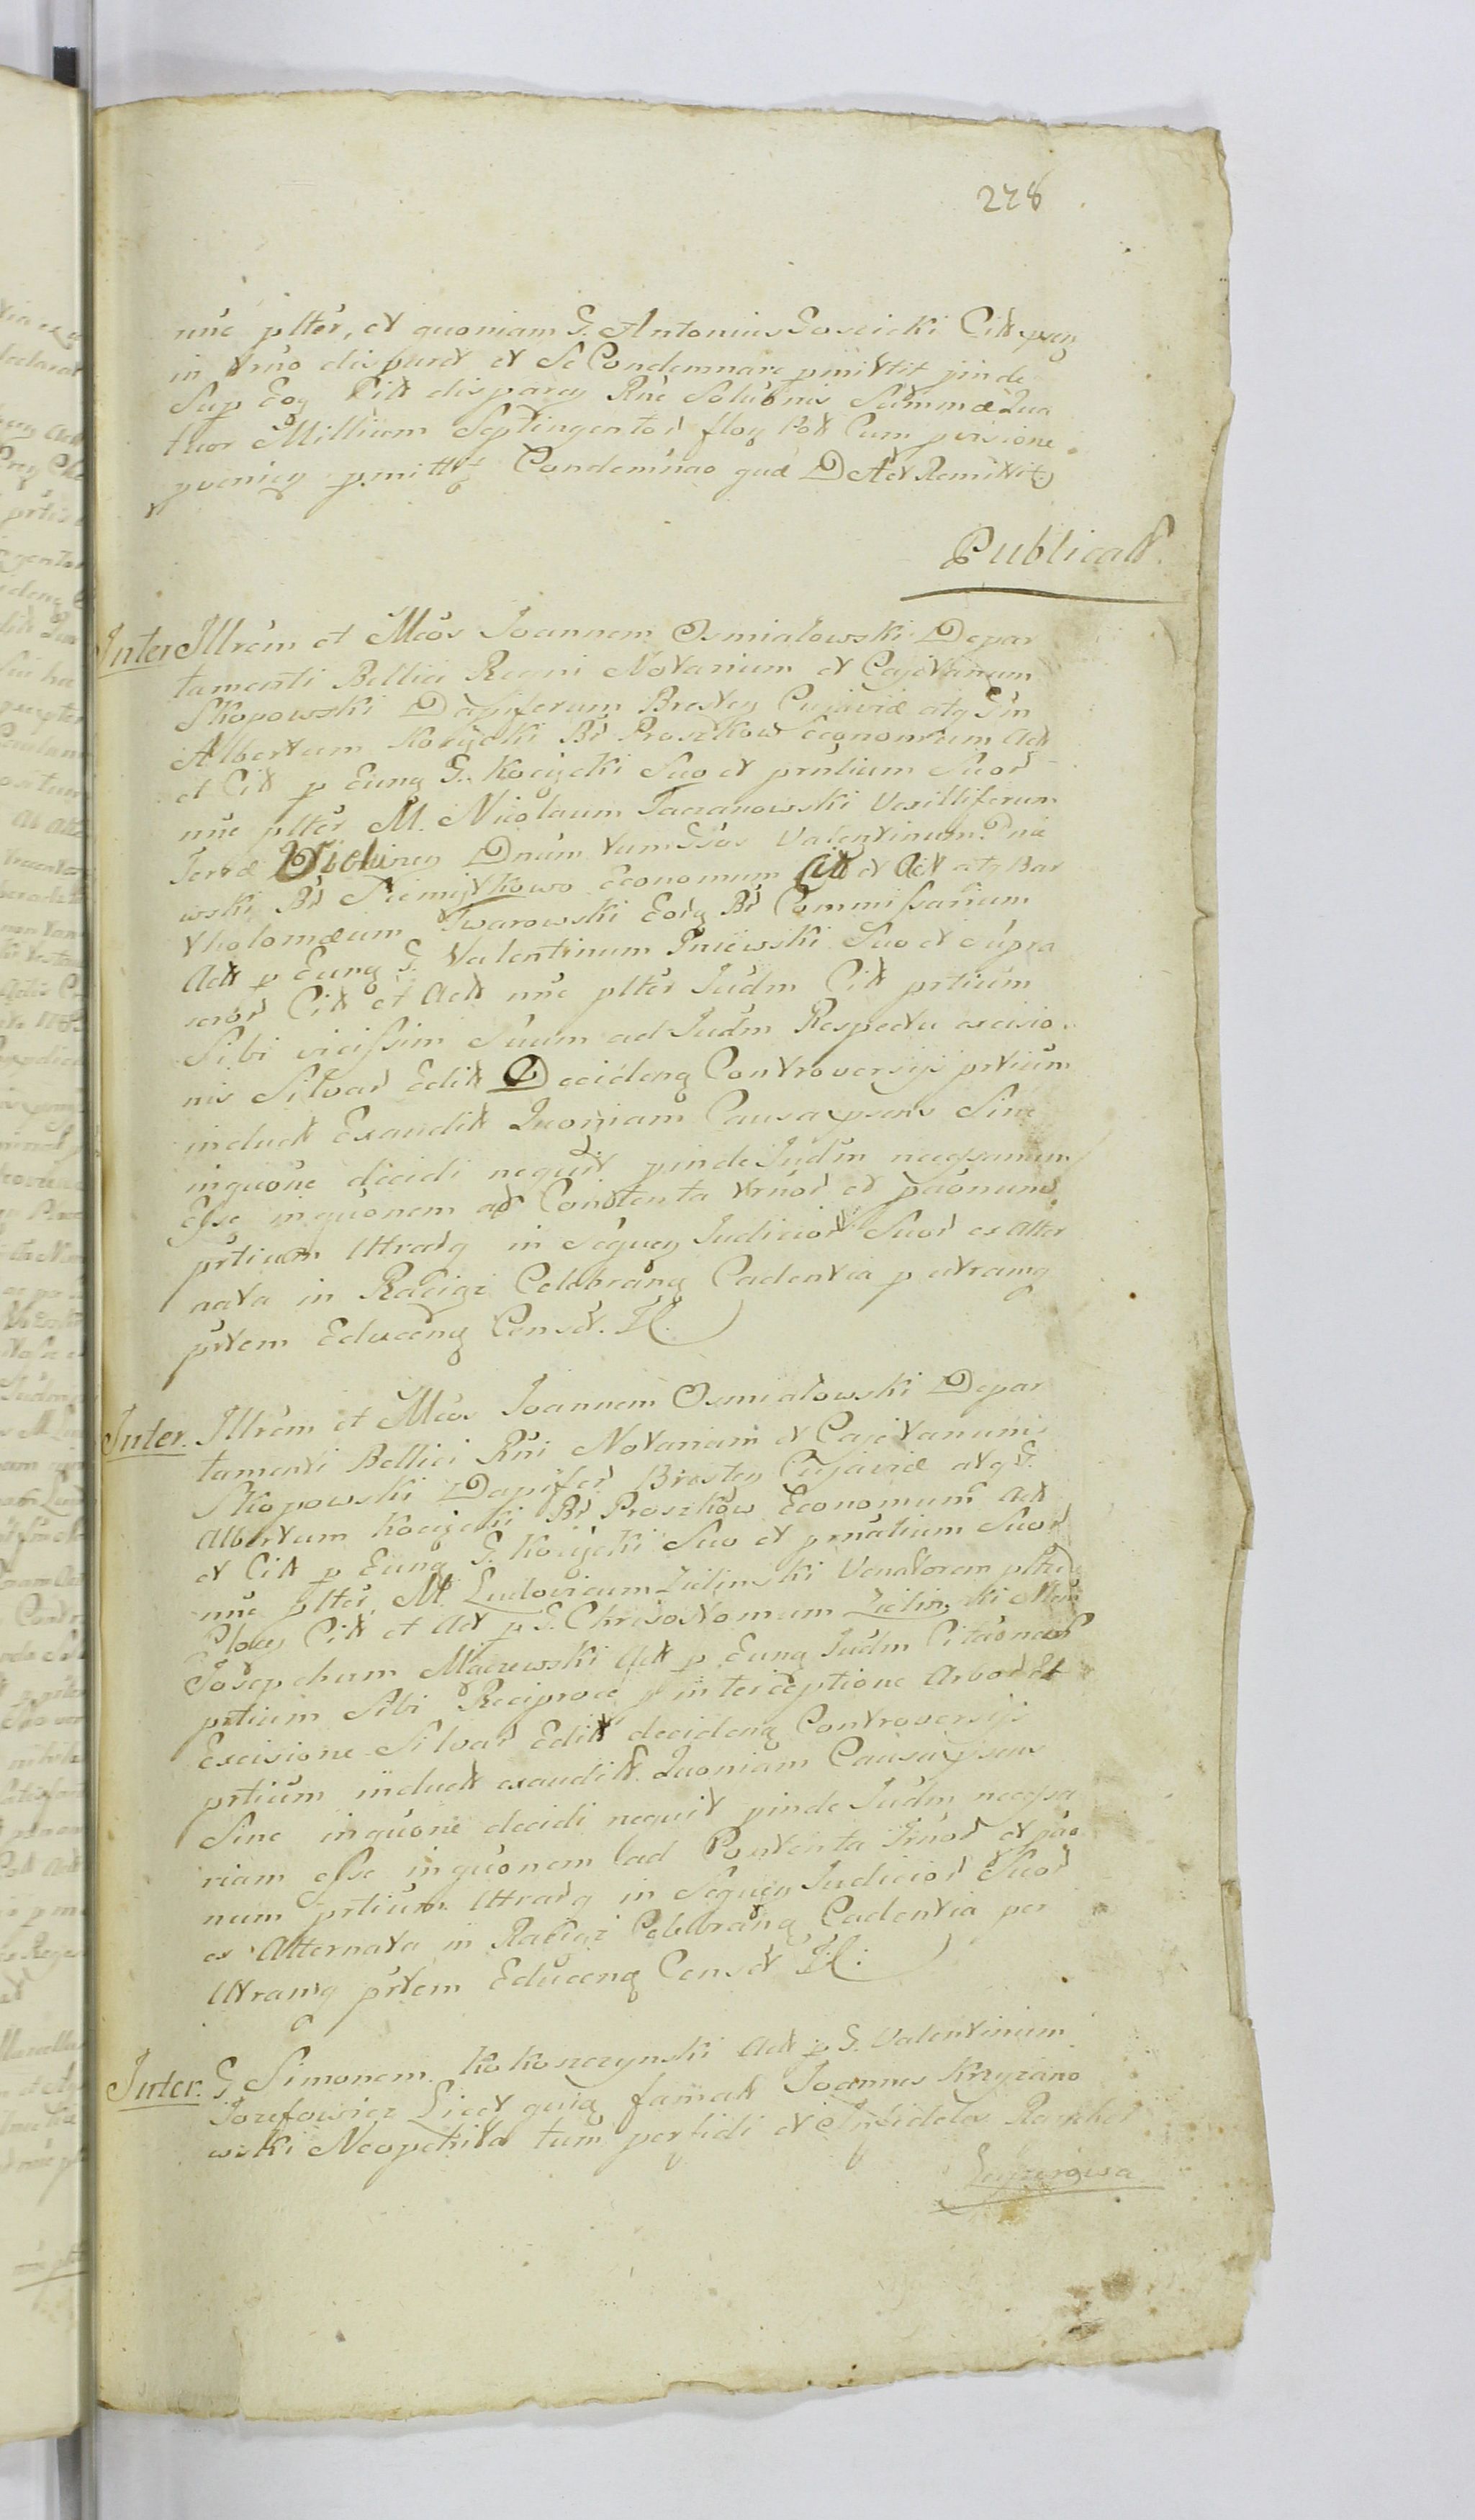 228
nuc plter, et quoniam G. Antonius Goscicki Citt
in trno disparet et Se Condemnare pmittit pinde
Sup Eoq Citt dispareq Rne Solutnis Summæ Qua
tuor Millium Septingentor floq Poll Cum pvisione
pvenieq pmittt Condemnao qua Dett Remittit.
Publicatt.
Inter Illrem et Mcos Joannem Osmiałowski Depar
tamenti Bellici Regni Notarium et Cajetanum
Skopowski Dapiferum Bresteq Cujaviæ atq Gm
Albertum Kocijcki Br Proszkow Economum Act
et Citt p Eunq G. Kocijcki Suo et prnlium Suor
nuc plter M. Nicolaum Taczanowski Vexilliferum
Terræ Dnum tum Gsos Valentinum Pnie
wski Br Siemiątkowo Economum Citt et Act atq Bar
tholomæum Twarowski Eorq Br Commissarium
Act p Eunq G. Valentinum Pniewski Suo et supra
scrbr Citt et Act nuc plter Judm Citt prtium
Sibi vicissim Suum ad Judm Respectu excisio
nis Silvar Edit Decidenq Controversijs prtium
induct Exaudit Quoniam Causa psens Sine
inquone decidi nequit pinde Judm necessarium
Esse inquonem ad Contenta trnor et paonum
prtium Utrarq in Sequeq Judicior Suor ex Alter
nata in Raciąż Celebranq Cadentia p utramq
prtem Educenq Censet. Jl.
Inter Illrem et Mcos Joannem Osmiałowski Depar
tamenti Bellici Rni Notarium et Cajetanum
Skopowski Dapifer Bresteq Cujaviæ atq G.
Albertum Kocijcki Br Proszkow Economum Act
et Citt p Eunq G. Kocijcki Suo et prnalium Suor
nuc plter M. Ludovicum Zielinski Venatorem plter
Ploceq Citt et Act p G. Chrisostomum Zielinski
Josephum Maczewski Act p Eunq Judm
prtium Sibi Reciproce p interceptione Arbor et
Excisione Silvar Edit decidenq Controversijs
prtium induct exaudit. Quoniam Causa psens
Sine inquone decidi nequit pinde Judm necessa
riam esse inquonem ad Contenta Trnor et pao
num prtium Utrarq in Sequeq Judicior Suor
ex Alternata in Raciąż Celebranq Cadentia per
Utramq prtem Educenq Censet Jl:
Inter G. Simonem Kokoszczynski Act p G. Valentinum
Jozefowicz Licet quiq famatt Joannes Krzyzano
wski Neophita tum perfidi et Infideles